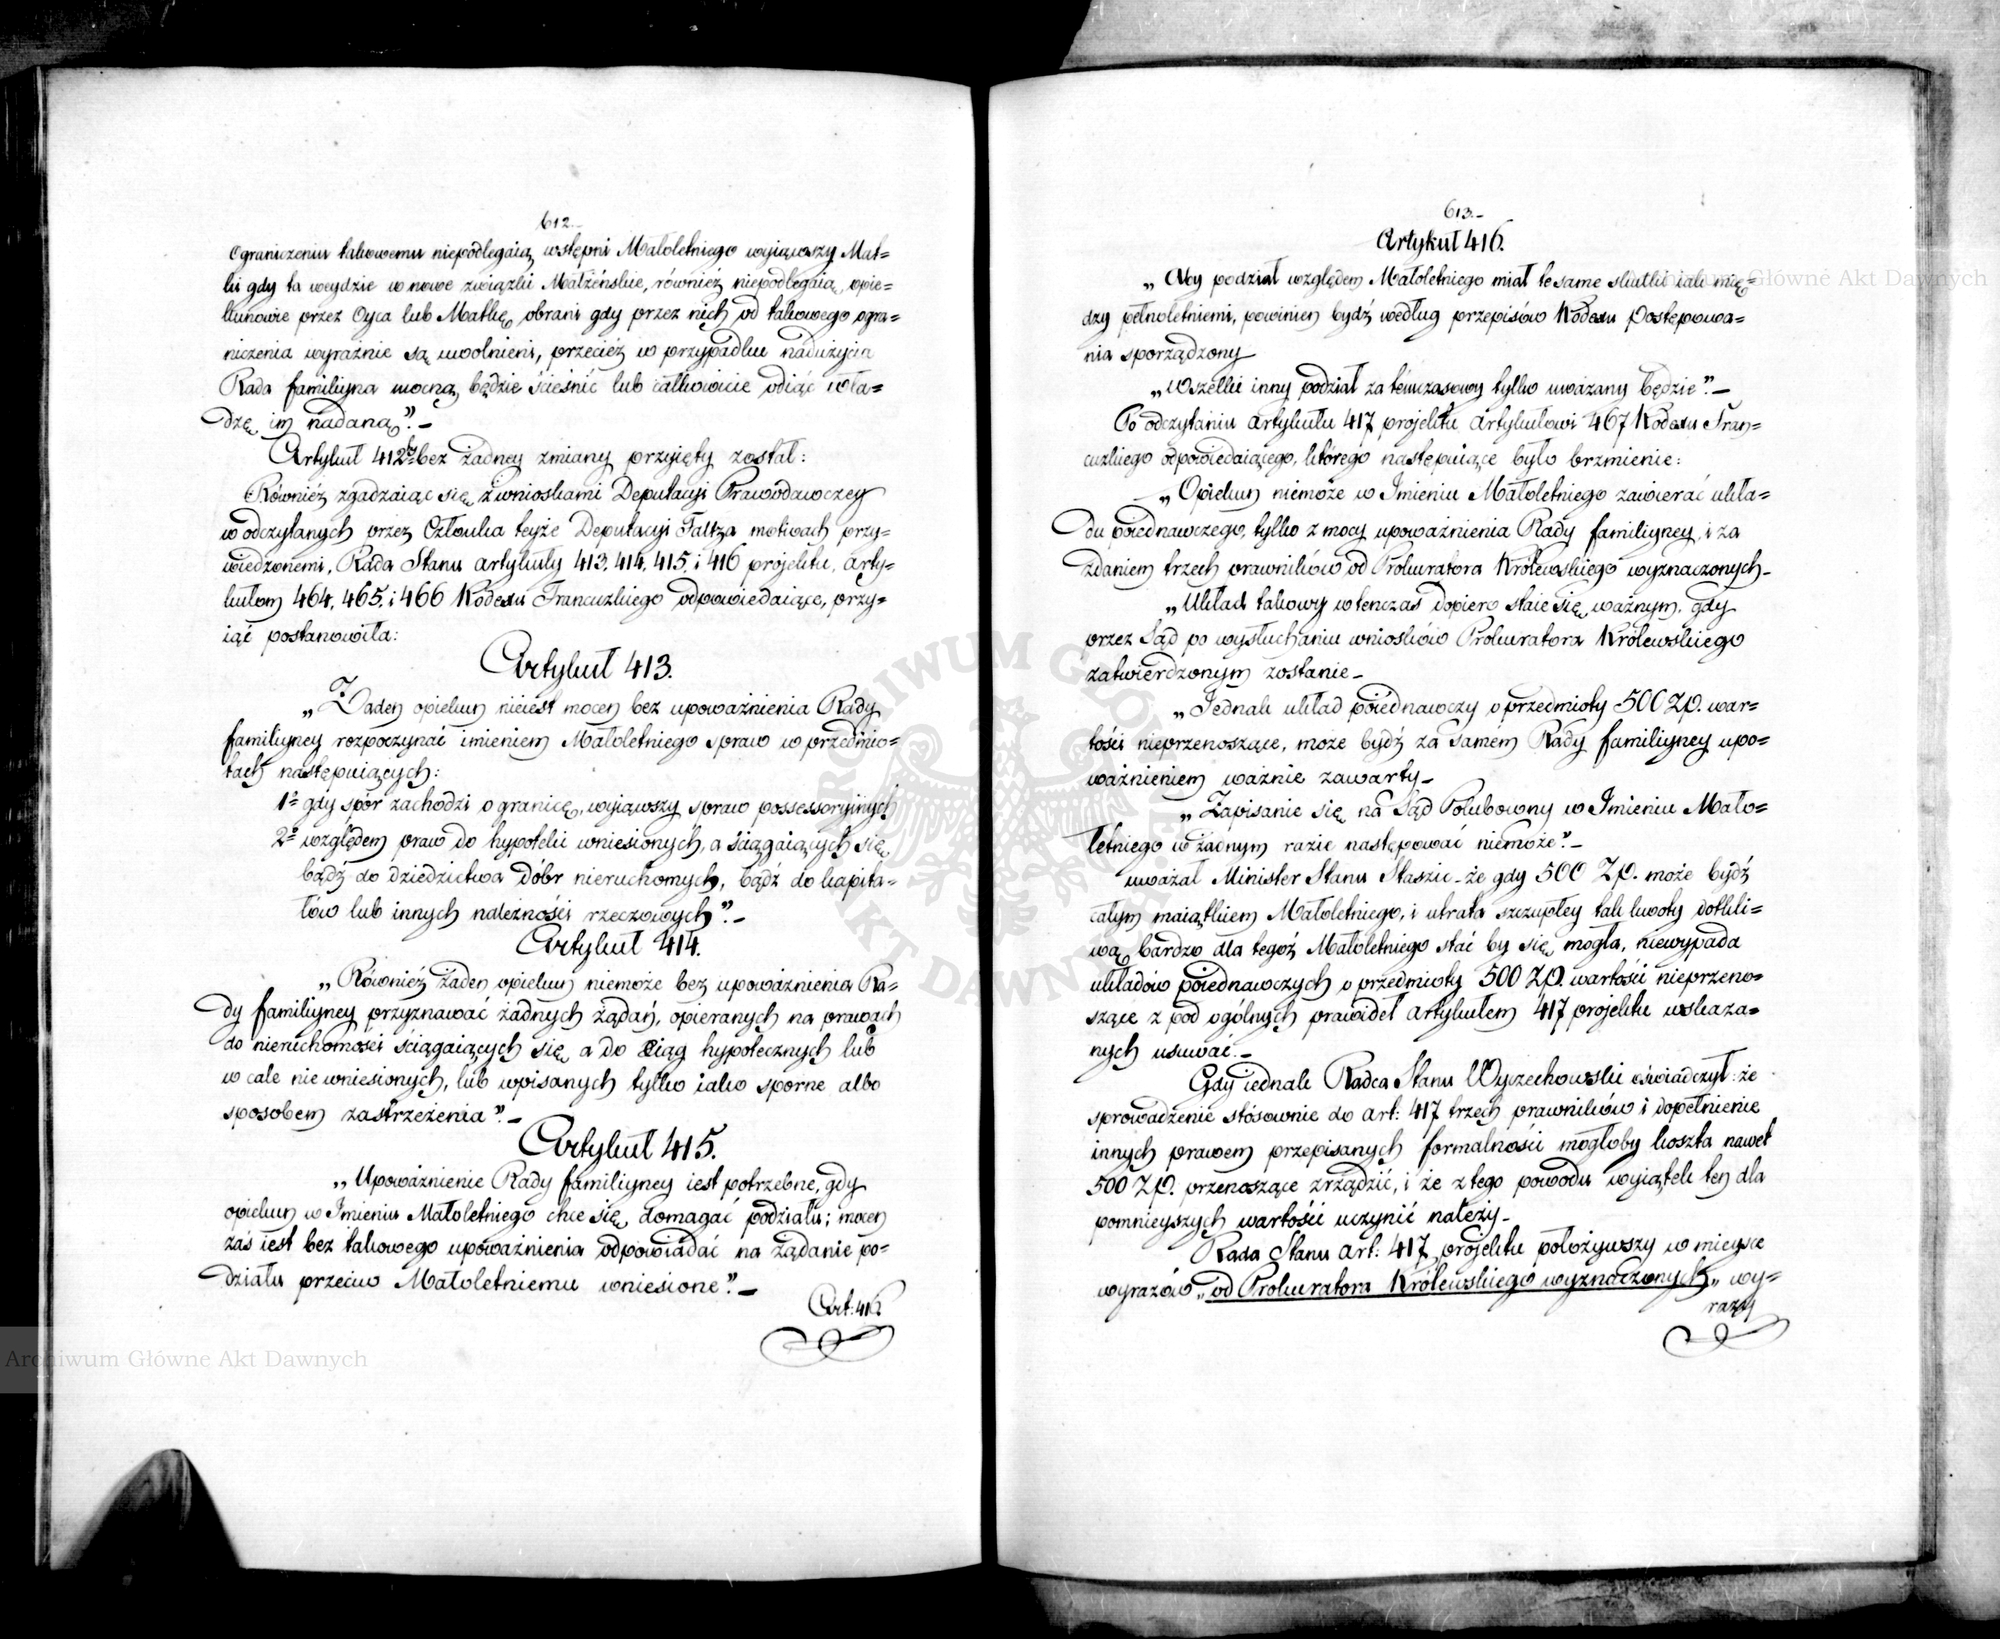 612.
Ograniczeniu takowemu niepodlegaią wstępni Małoletniego wyiąwszy Mat=
ki gdy ta weydzie w nowe związki Małżeńskie, również niepodlegaią opie=
kunowie przez Oyca lub Matkę obrani gdy przez nich od takowego ogra=
niczenia wyraźnie są uwolnieni, przecież w przypadku nadużycia
Rada familiyna mocną będzie ścieśnić lub całkowicie odiąć wła=
dzę im nadaną”.–
Artykuł 412ty bez żadney zmiany przyięty został:
Również zgadzaiąc się z wnioskami Deputacyi Prawodawczey
w odczytanych przez Członka teyże Deputacyi Faltza motivach przy=
wiedzonemi, Rada Stanu artykuły 413, 414, 415, i 416 projektu, arty=
kułom 464, 465, i 466 Kodexu Francuzkiego odpowiedaiące, przy=
iąć postanowiła:
Artykuł 413.
„Żaden opiekun nieiest mocen bez upoważnienia Rady
familiyney rozpoczynać imieniem Małoletniego spraw w przedmio=
tach następuiących:
1o gdy spór zachodzi o granicę, wyiąwszy spraw possessoryinych
2o względem praw do hypoteki wniesionych, a ściągaiących się
bądź do dziedzictwa dóbr nieruchomych, bądź do kapita=
łów lub innych należności rzeczowych”.–
Artykuł 414.
„Również żaden opiekun niemoże bez upoważnienia Ra=
dy familiyney przyznawać żadnych żądań, opieranych na prawach
do nieruchomości ściągaiących się a do xiąg hypotecznych lub
w cale nie wniesionych, lub wpisanych tylko iako sporne albo
sposobem zastrzeżenia”.–
Artykuł 415.
„Upoważnienie Rady familiyney iest potrzebne, gdy
opiekun w Imieniu Małoletniego chce się domagać podziału; mocen
zaś iest bez takowego upoważnienia odpowiadać na żądanie po=
działu przeciwo Małoletniemu wniesione”.–
Art: 416.
613.–
Artykuł 416.
„Aby podział względem Małoletniego miał te same skutki iak mię=
dzy pełnoletniemi, powinien bydź według przepisów Kodexu Postępowa=
nia sporządzony
„Wszelki inny podział za tymczasowy tylko uważany będzie”.–
Po odczytaniu artykułu 417 projektu Artykułowi 467 Kodexu Fran=
cuzkiego odpowiedaiącego, którego następuiące było brzmienie:
„Opiekun niemoże w Imieniu Małoletniego zawierać ukła=
du poiednawczego, tylko z mocy upoważnienia Rady familiyney, i za
zdaniem trzech prawników od Prokuratora Królewskiego wyznaczonych–
„Układ takowy wtenczas dopiero staie się ważnym, gdy
przez Sąd po wysłuchaniu wniosków Prokuratora Królewskiego
zatwierdzonym zostanie–
„Jednak układ poiednawczy o przedmioty 500 Zp. war=
tości nieprzenoszące, może bydź za samem Rady familiyney upo=
ważnieniem ważnie zawarty–
„Zapisanie się na Sąd Polubowny w Imieniu Mało=
letniego w żadnym razie następować niemoże”.–
uważał Minister Stanu Staszic – że gdy 500 Zp. może bydź
całym maiątkiem Małoletniego, i utrata szczupłey tak kwoty dotkli=
wą bardzo dla tegoż Małoletniego stać by się mogła, niewypada
układów poiednawczych o przedmioty 500 Zp. wartości nieprzeno=
szące z pod ogólnych prawideł artykułem 417 projektu wskaza=
nych usuwać.–
Gdy iednak Radca Stanu Wyczechowski oświadczył: że
sprowadzenie stósownie do art: 417 trzech prawników i dopełnienie
innych prawem przepisanych formalności mogłoby koszta nawet
500 Zp. przenoszące zrządzić, i że z tego powodu wyiątek ten dla
pomnieyszych wartości uczynić należy–
Rada Stanu art: 417 projektu położywszy w mieysce
wyrazów „od Prokuratora Królewskiego wyznaczonych” wy=
razy
Archiwum Główne Akt Dawnych
Archiwum Główne Akt Dawnych
ARCHIWUM GŁÓWNE AKT DAWNYCH